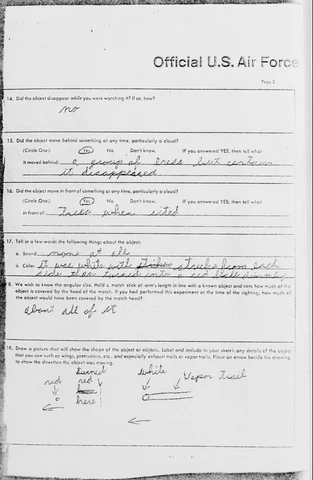 Official U.S. Air Force
Page 3
14. Did the object disappear while you were watching it? If so, how?
no
15. Did the object move behind something at any time, particularly a cloud?
(Circle One): Yes No Don't know. IF you answered YES, then tell what
it moved behind: a group of trees but certain
it disappeared
16. Did the object move in front of something at any time, particularly a cloud?
(Circle One): Yes No Don't know. IF you answered YES, then tell what
in front of: Trees when
17. Tell in a few words the following things about the object:
a. Sound none at all
b. Color it was white with streaks from each
side then turned into a red
18. We wish to know the angular size. Hold a match stick at arm's length in line with a known object and note how much of the
object is covered by the head of the match. If you had performed this experiment at the time of the sighting, how much of
the object would have been covered by the match head?
about all of it
19. Draw a picture that will show the shape of the object or objects. Label and include in your sketch any details of the object
that you saw such as wings, protrusions, etc., and especially exhaust trails or vapor trails. Place an arrow beside the drawing
to show the direction the object was moving.
turned white
red red Vapor Trail
here